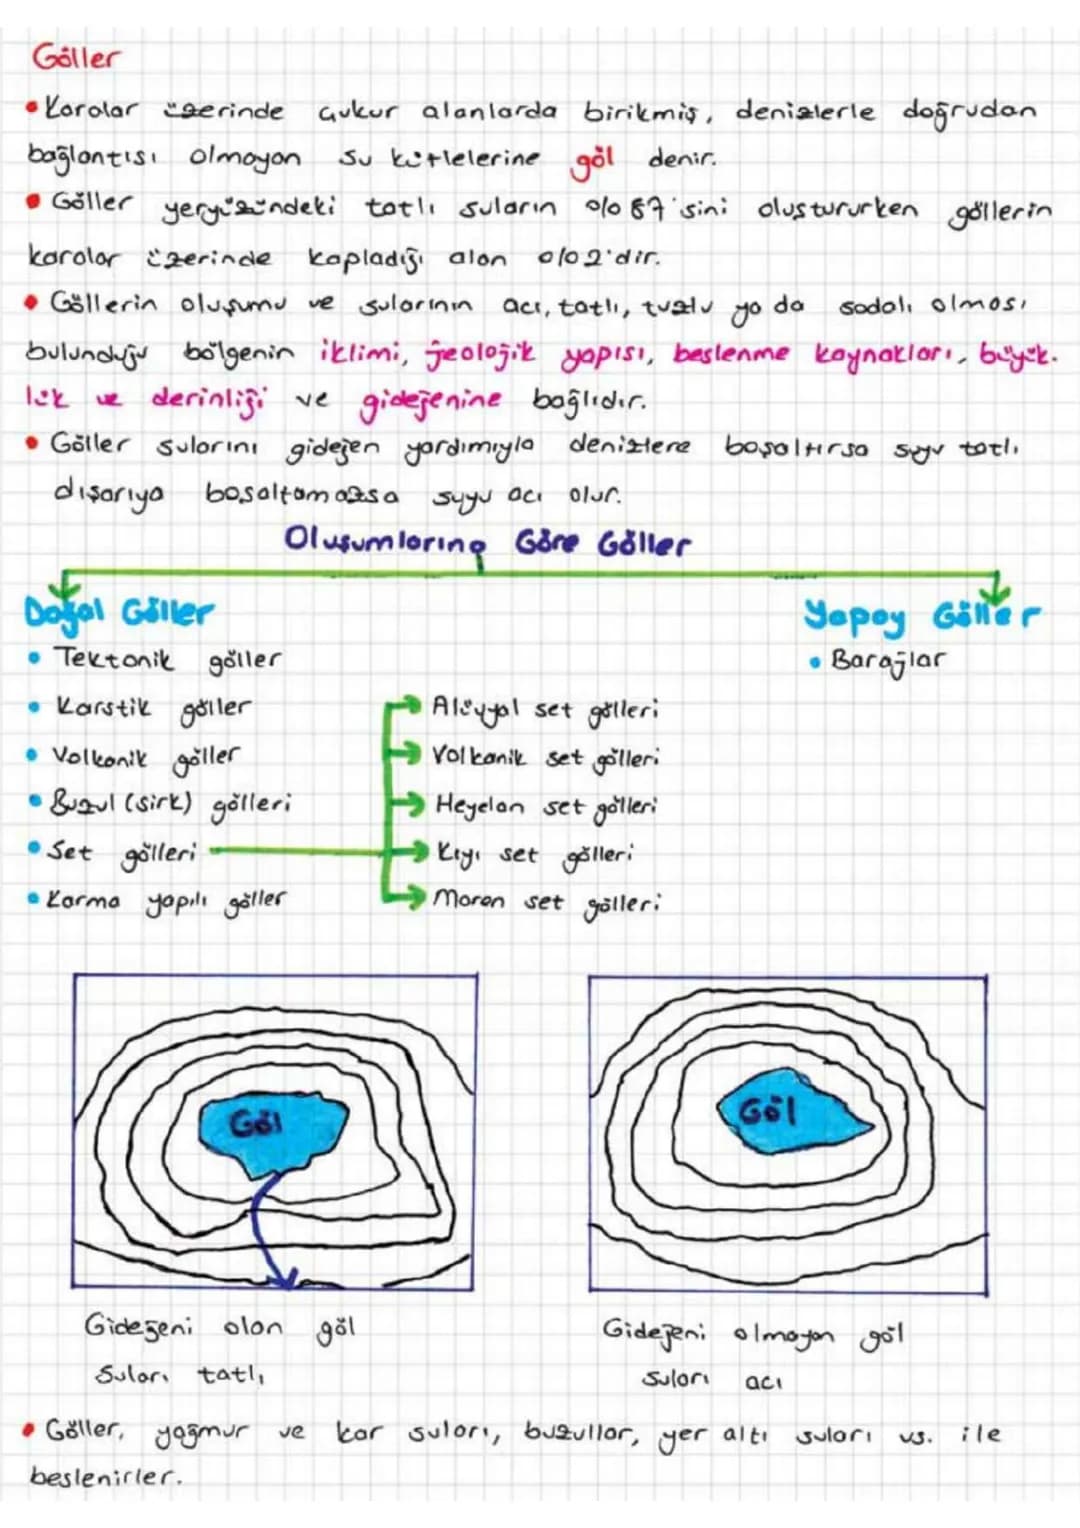 Göller
• Karalar üzerinde çukur alanlarda birikmiş, denizlerle doğrudan
bağlantısı olmayan su kütlelerine göl denir.
• Göller yeryüzündeki tatlı suların %87'sini oluştururken göllerin
karalar üzerinde kapladığı alan %2'dir.
• Göllerin oluşumu ve sularının acı, tatlı, tuzlu ya da sodalı olması
bulunduğu bölgenin iklimi, jeolojik yapısı, beslenme kaynakları, büyük-
lük ve derinliği ve gideğenine bağlıdır.
• Göller sularını gideğen yardımıyla denizlere boşaltırsa suyu tatlı
dışarıya boşaltamazsa suyu acı olur.
Oluşumlarına Göre Göller
Doğal Göller
Yapay Göller
• Tektonik göller
• Barajlar
• Karstik göller
Alüvyal set gölleri
• Volkanik göller
Volkanik set gölleri
• Buzul (sirk) gölleri
Heyelan set gölleri
• Set gölleri
Kıyı set gölleri
• Karma yapılı göller
Moren set gölleri
Göl
Göl
Gideğeni olan göl
Suları tatlı
Gideğeni olmayan göl
Suları acı
• Göller, yağmur ve kar suları, buzullar, yer altı suları vs. ile
beslenirler.